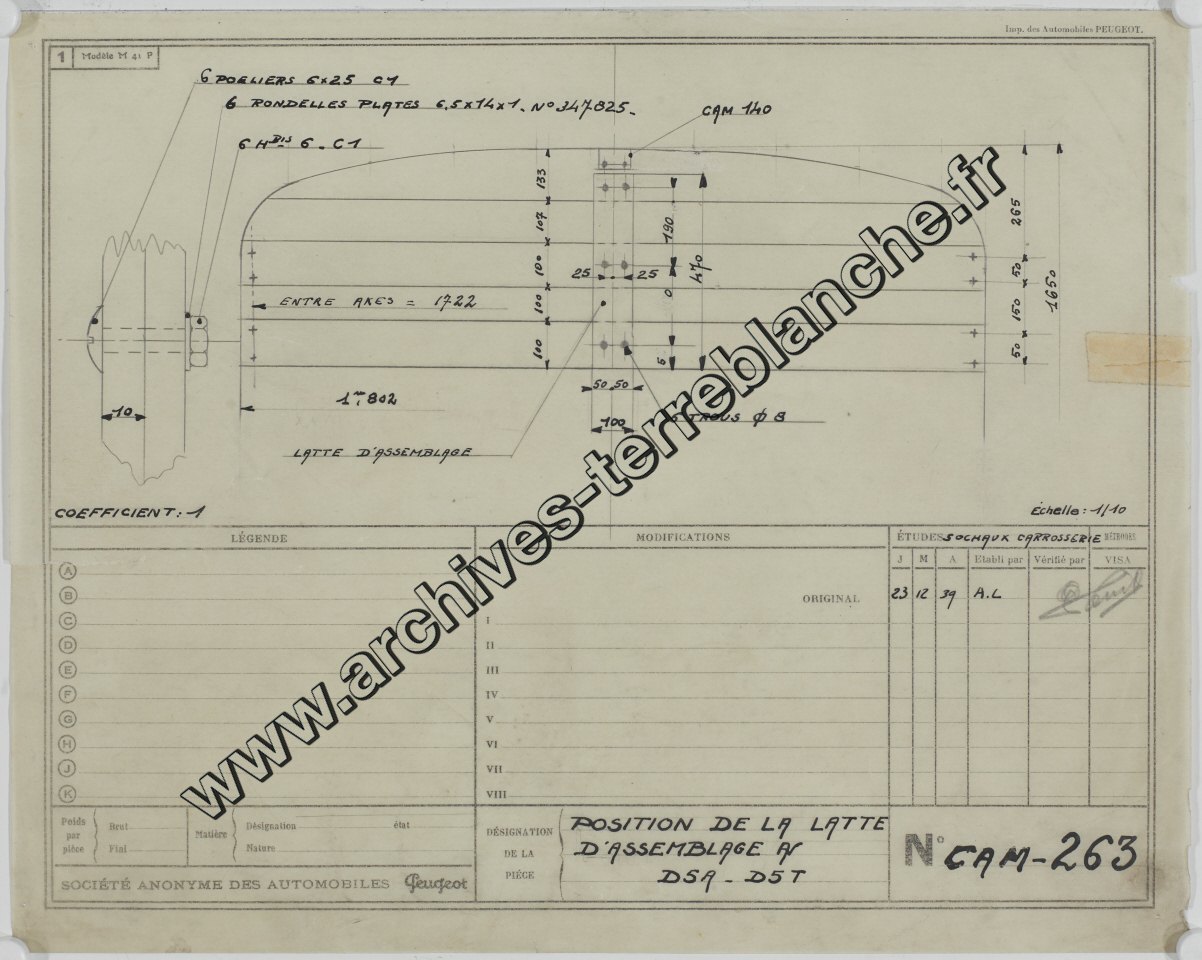 Imp. des Automobiles PEUGEOT.
1 Modèle M 41 P
6 POELIERS 6x25 C1
6 RONDELLES PLATES 6,5x14x1. N° 347.825.
CAM 140
6 H BIS 6. C1
133
107
100
100
100
190
470
0
5
25 25
265
50
150
50
1650
ENTRE AXES = 1722
1m,802
10
50 50
100
TROUS φ 8
LATTE D'ASSEMBLAGE
COEFFICIENT: 1
Échelle: 1/10
www.archives-terreblanche.fr
LÉGENDE
MODIFICATIONS
ÉTUDES SOCHAUX CARROSSERIE MÉTHODES
J M A Etabli par Vérifié par VISA
A
B
C
D
E
F
G
H
J
K
ORIGINAL 23 12 39 A.L
I
II
III
IV
V
VI
VII
VIII
Poids par pièce Brut Fini
Matière Désignation état
Nature
SOCIÉTÉ ANONYME DES AUTOMOBILES Peugeot
DÉSIGNATION DE LA PIÈCE
POSITION DE LA LATTE
D'ASSEMBLAGE AR
DSA - D5T
N° CAM-263